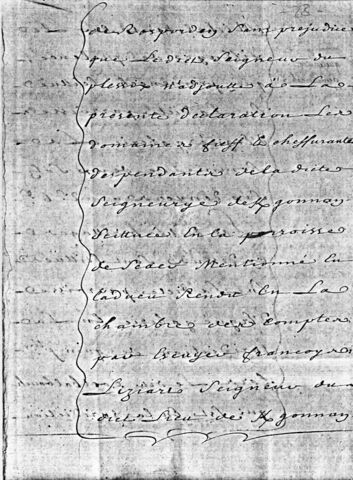 de Rosporden sans prejudice
que ledict Seigneur du
plessix n'adjoutte a La
presente declaration Les
domaines fieff & cheffrante
despendants de la dicte
Seigneurye de Kgonnan
Scittuée En la parroisse
de Mentionné En
Ladveu Rendu En La
chambre des Comptes
par Escuyer francoys
Seigneur du
dict Lieu de Kgonnan